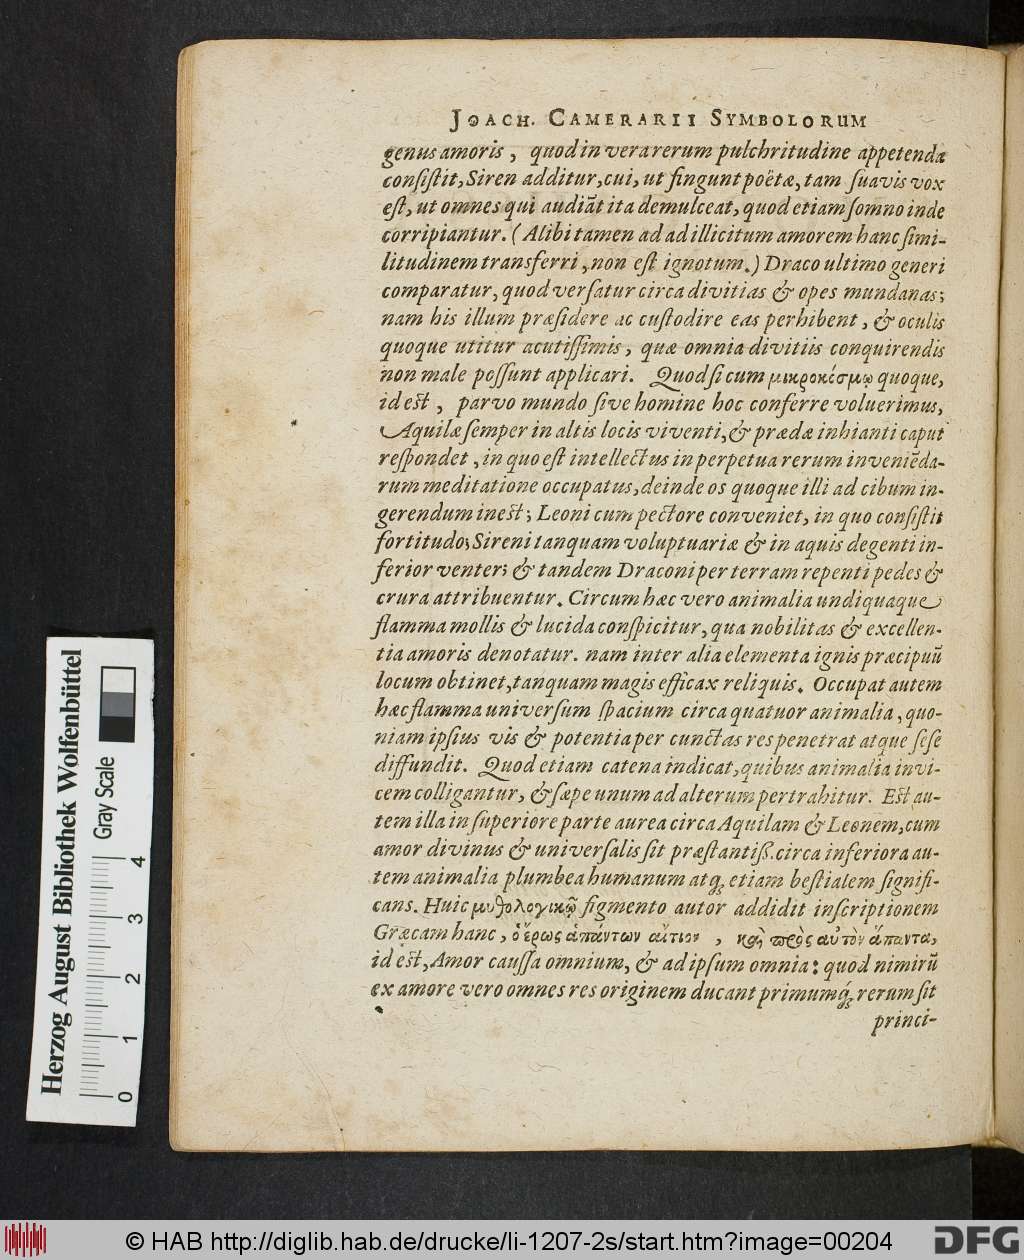 JOACH. CAMERARII SYMBOLORUM
genus amoris, quod in vera rerum pulchritudine appetenda
consistit, Siren additur, cui, ut fingunt poëtæ, tam suavis vox
est, ut omnes qui audiāt ita demulceat, quod etiam somno inde
corripiantur. (Alibi tamen ad ad illicitum amorem hanc simi-
litudinem transferri, non est ignotum.) Draco ultimo generi
comparatur, quod versatur circa divitias & opes mundanas;
nam his illum præsidere ac custodire eas perhibent, & oculis
quoque utitur acutissimis, quæ omnia divitiis conquirendis
non male possunt applicari. Quod si cum μικροκόσμῳ quoque,
id est, parvo mundo sive homine hoc conferre voluerimus,
Aquilæ semper in altis locis viventi, & prædæ inhianti caput
respondet, in quo est intellectus in perpetua rerum inveniēda-
rum meditatione occupatus, deinde os quoque illi ad cibum in-
gerendum inest; Leoni cum pectore conveniet, in quo consistit
fortitudo; Sireni tanquam voluptuariæ & in aquis degenti in-
ferior venter; & tandem Draconi per terram repenti pedes &
crura attribuentur. Circum hæc vero animalia undiquaque
flamma mollis & lucida conspicitur, qua nobilitas & excellen-
tia amoris denotatur. nam inter alia elementa ignis præcipuū
locum obtinet, tanquam magis efficax reliquis. Occupat autem
hæc flamma universum spacium circa quatuor animalia, quo-
niam ipsius vis & potentia per cunctas res penetrat atque sese
diffundit. Quod etiam catena indicat, quibus animalia invi-
cem colligantur, & sæpe unum ad alterum pertrahitur. Est au-
tem illa in superiore parte aurea circa Aquilam & Leonem, cum
amor divinus & universalis sit præstantiß. circa inferiora au-
tem animalia plumbea humanum atq; etiam bestialem signifi-
cans. Huic μυθολογικῷ figmento autor addidit inscriptionem
Græcam hanc, ὁ ἔρως ἁπάντων αἴτιον, καὶ πρὸς αὐτὸν ἅπαντα,
id est, Amor caussa omnium, & ad ipsum omnia: quod nimirū
ex amore vero omnes res originem ducant primumq́; rerum sit
princi-
Herzog August Bibliothek Wolfenbüttel
Gray Scale
0 1 2 3 4
© HAB http://diglib.hab.de/drucke/li-1207-2s/start.htm?image=00204
DFG